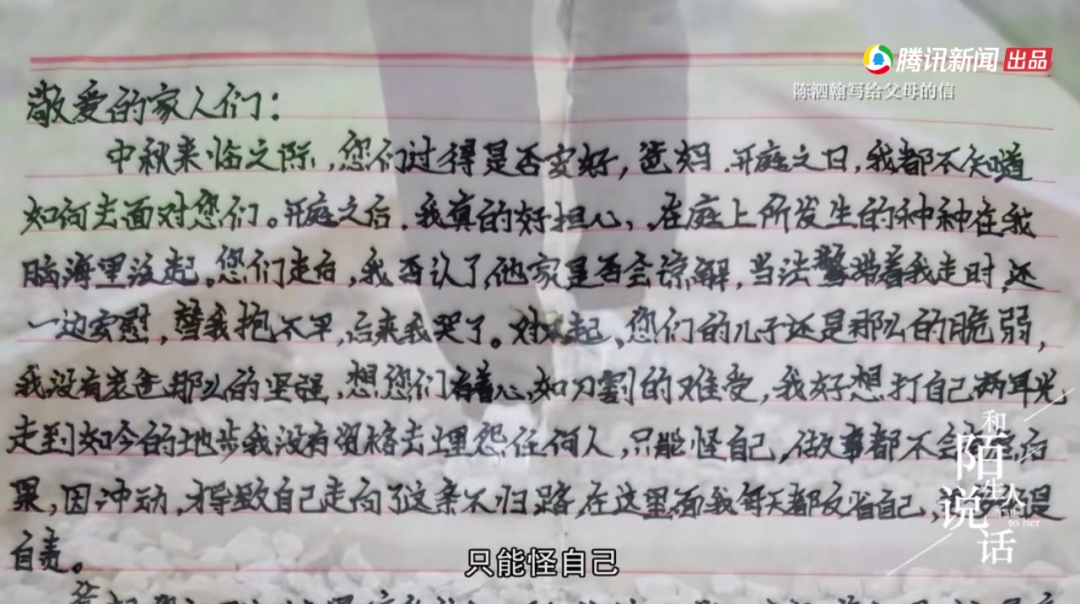 腾讯新闻 出品
陈泗翰写给父母的信
敬爱的家人们：
中秋来临之际，您们过得是否安好，爸妈．开庭之日，我都不知道
如何去面对您们。开庭之后．我真的好担心，在庭上所发生的种种在我
脑海里泛起。您们走后，我否认了他家是否会谅解，当法警带着我走时，还
一边安慰，替我抱不平，后来我哭了。对不起，您们的儿子还是那么的脆弱，
我没有爸那么的坚强，想您们有着心如刀割的难受，我好想打自己两耳光
走到如今的地步我没有资格去埋怨任何人，只能怪自己，做事都不会后
果，因冲动，才导致自己走向了这条不归路，在这里面我每天都反省自己，
自责。
和陌生人说话
Talk to her
只能怪自己